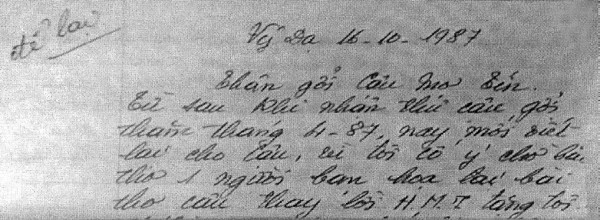 để lại
Vỹ Dạ 16-10-1987
Thân gởi Cậu
Từ sau khi nhận thư cậu gởi
thăm tháng 4-87, nay mới viết
lại cho cậu, vì tôi có ý chờ bài
thơ 1 người bạn họa lại bài
thơ cậu thay lời H.M.T tặng tôi